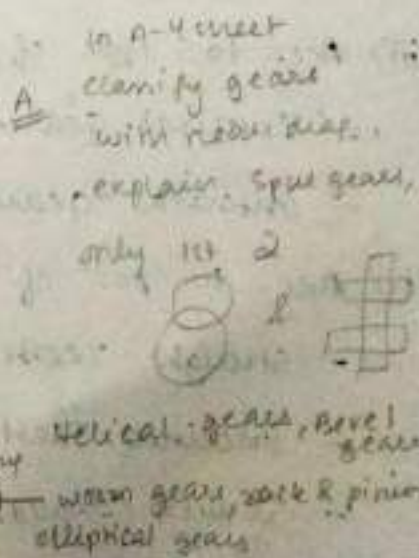 in A-4 sheet
A classify gears
with neat diag.,
explain Spur gears,
only 1st 2
&
Helical gears, Bevel
gears
worm gears, rack & pinion
elliptical gears